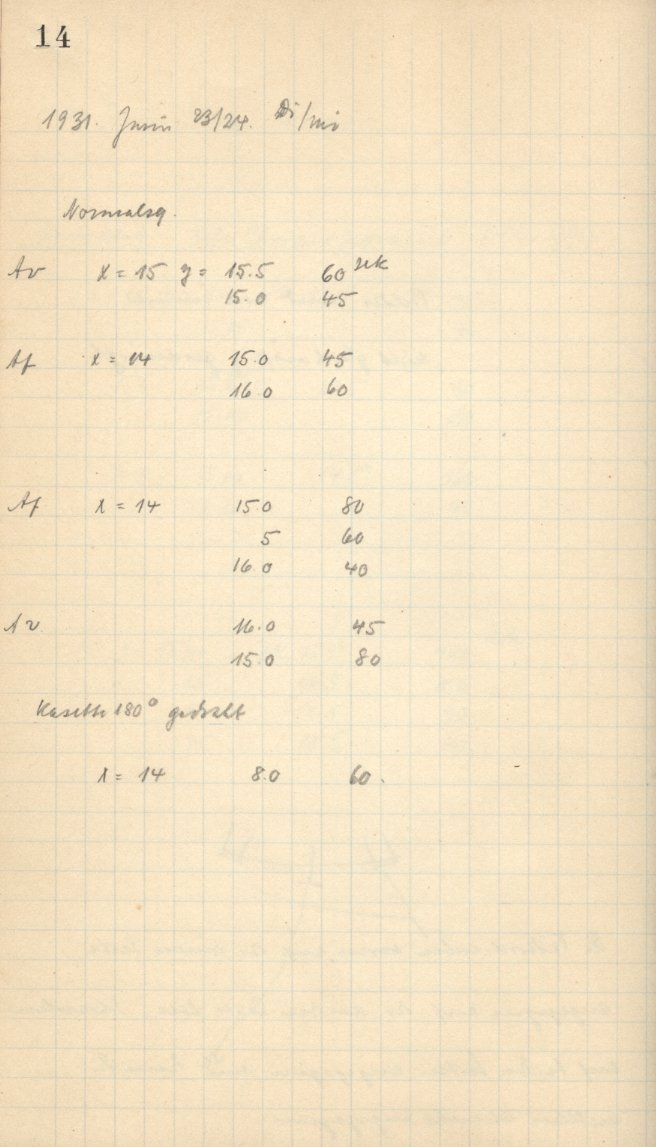 14
1931. Juni 23/24. Di/Mi
Normalsq.
Av x = 15 y = 15.5 60 sek
15.0 45
Af x = 14 15.0 45
16.0 60
Af x = 14 15.0 80
5 60
16.0 40
Av 16.0 45
15.0 80
Kasette 180° gedreht
x = 14 8.0 60.